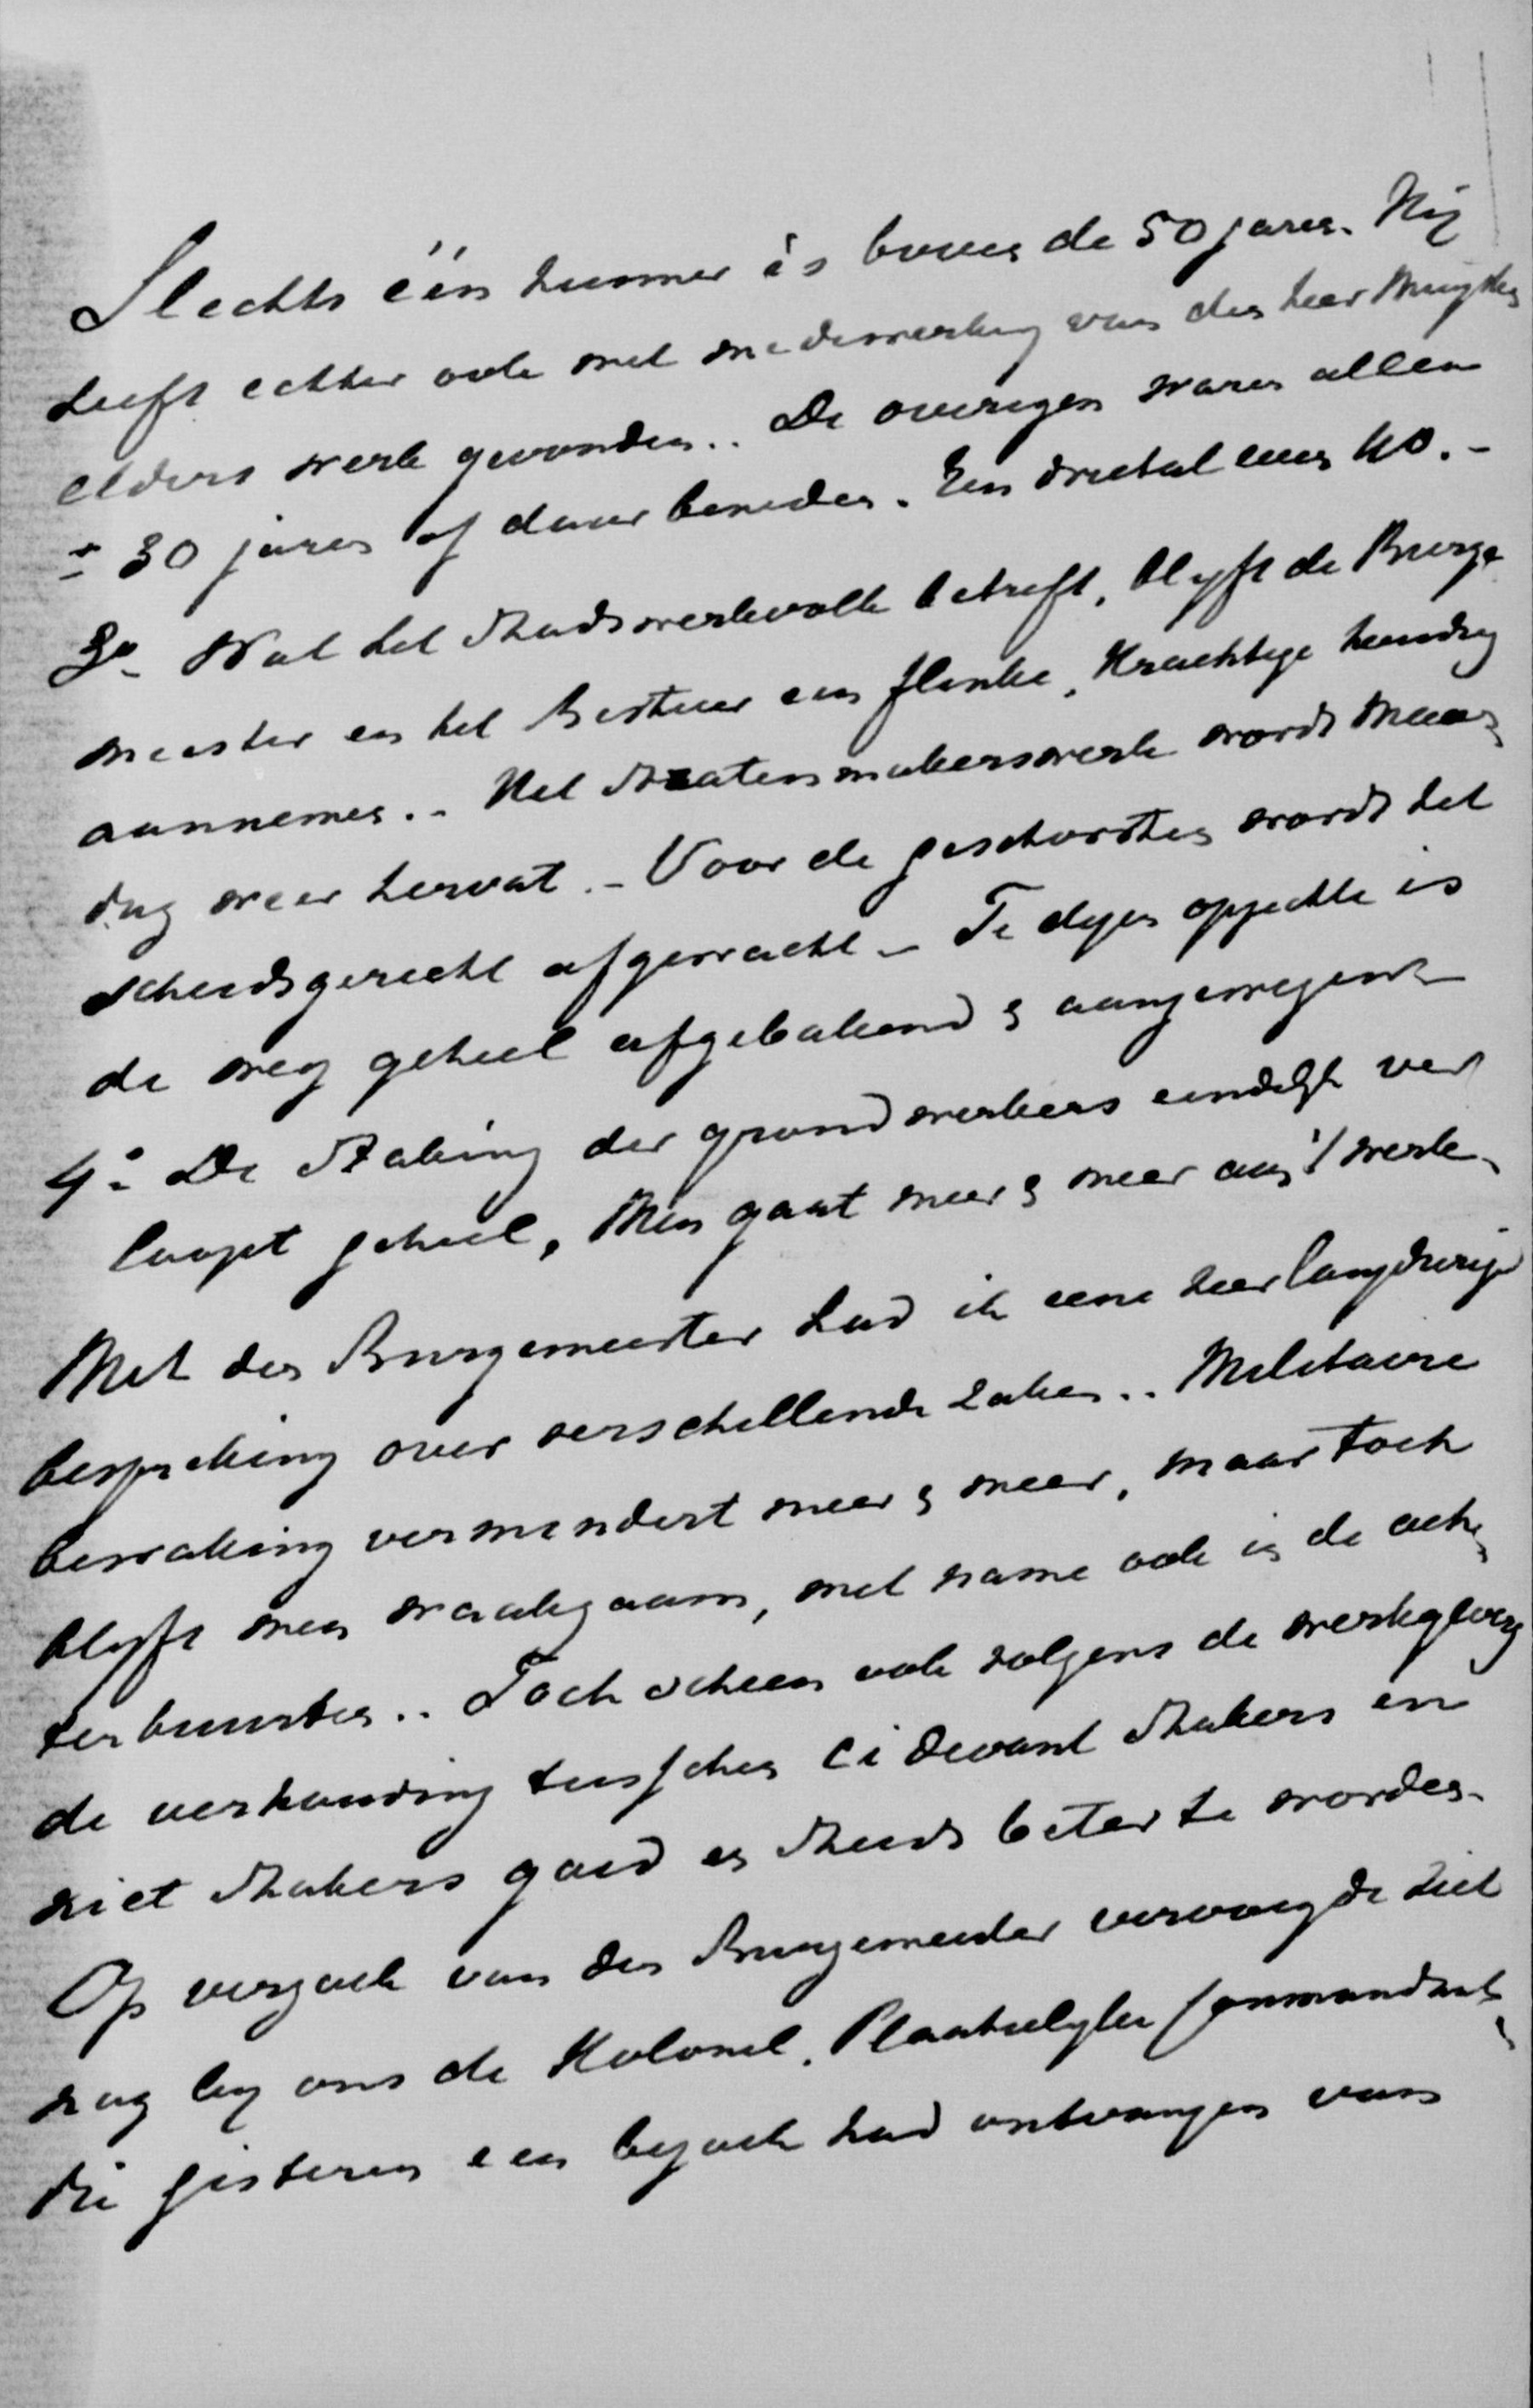 Slechts één hunner is boven de 50 jaren. Hij
heeft echter ook met medewerking van den heer Muysken
elders werk gevonden.. De overigen waren allen
± 30 jaren of daar beneden. Een drietal even 40.-
3o. Wat het Stadswerkvolk betreft, blyft de Burge
meester en het Bestuur een flinke, krachtige houding
aannemen.. Het Stratenmakerswerk wordt Maan
dag weer hervat.- Voor de geschorsten wordt het
scheidsgerecht afgewacht - Te dezen opzichte is
de weg geheel afgebakend & aangewezen -
4o. De Staking der grondwerkers eindelyk ver
loopt geheel, Men gaat meer & meer aan 't werk.
Met den Burgemeester had ik eene zeer langdurige
bespreking over verschillende zaken.. Militaire
bewaking vermindert meer & meer, maar toch
blyft men waakzaam, met name ook in de ach
terbuurten.. Toch scheen ook volgens de werkgevers
de verhouding tusschen ci devant Stakers en
niet Stakers goed en Steeds beter te worden.
Op verzoek van den Burgemeester vervoegde zich
nog by ons de Kolonel, Plaatselyke Commandant,
die gisteren een bezoek had ontvangen van